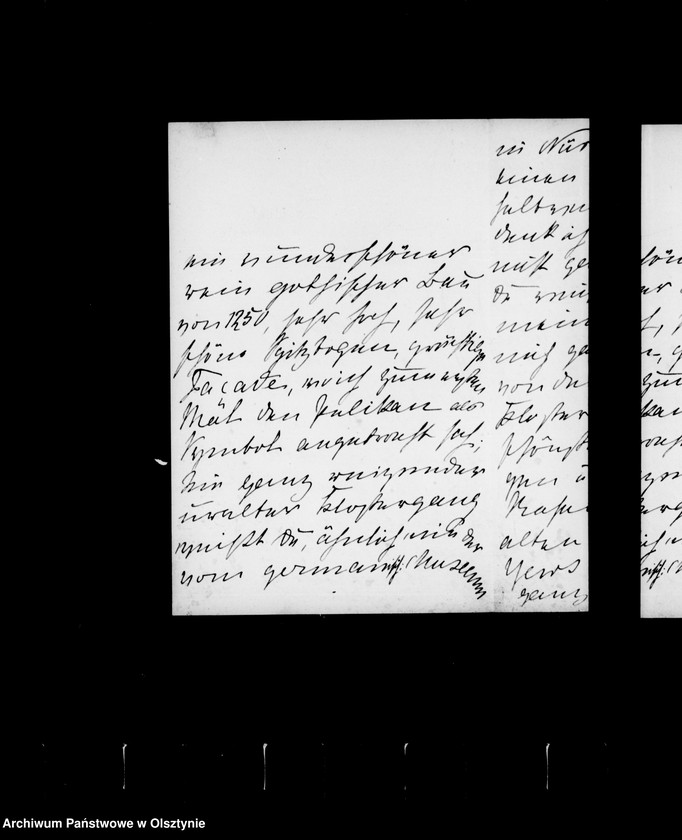 ein wunderschöner
rein gothischer Bau
von 1250, sehr hoch, sehr
schöne Spitzbogen, prächtige
Facade, wo ich zum ersten
Mal den Pelikan als
Symbol angebracht sah.
Ein ganz reizender
uralter Klostergang
weißt du, ähnlich wie der
vom german. Museum
in Nür
einen
selben
denk ich
mußt ge
du
mein
mich ge
von de
Kloster
schönst
gen
alten
ganz
Archiwum Państwowe w Olsztynie